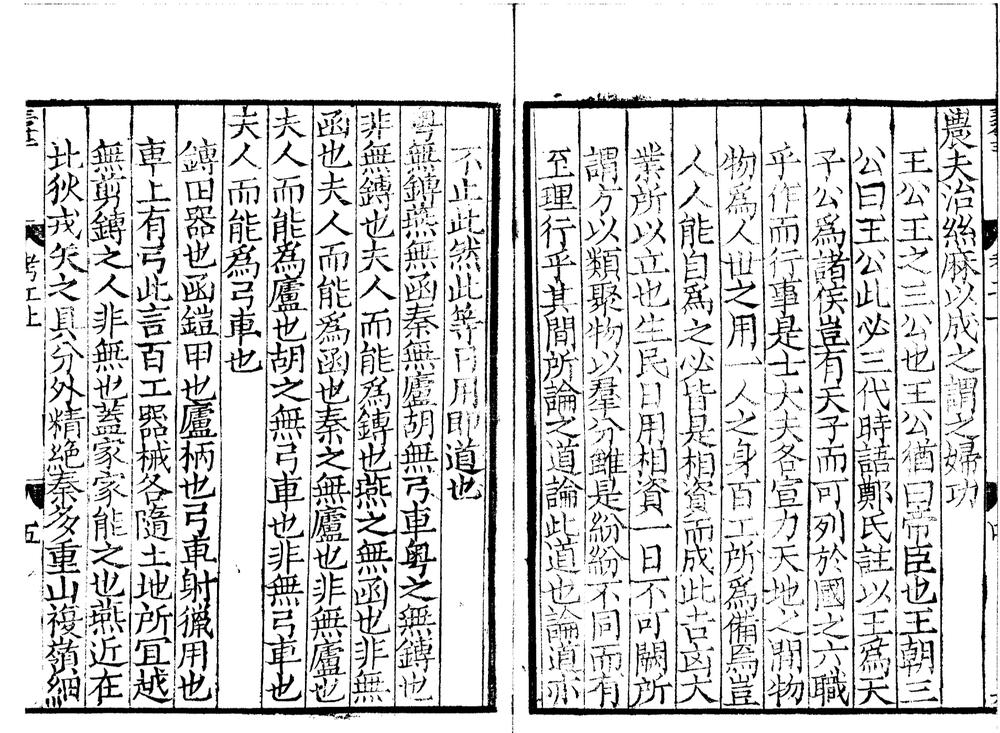 農夫治絲麻以成之謂之婦功
王公王之三公也王公猶曰帝臣也王朝三
公曰王公此必三代時語鄭氏註以王爲天
子公爲諸侯豈有天子而可列於國之六職
乎作而行事是士大夫各宣力天地之間物
物爲人世之用一人之身百工所爲備焉豈
人人能自爲之必皆是相資而成此古凶大
業所以立也生民日用相資一日不可闕所
謂方以類聚物以羣分雖是紛紛不同而有
至理行乎其間所論之道論此道也論道亦
不止此然此等日用即道也
粤無鏄燕無函秦無廬胡無弓車粤之無鏄也
非無鏄也夫人而能爲鏄也燕之無函也非無
函也夫人而能爲函也秦之無廬也非無廬也
夫人而能爲廬也胡之無弓車也非無弓車也
夫人而能爲弓車也
鏄田器也函鎧甲也廬柄也弓車射獵用也
車上有弓此言百工器械各隨土地所宜越
無剪鏄之人非無也蓋家家能之也燕近在
北狄戎矢之具分外精絶秦多重山複嶺綱
考工上
五